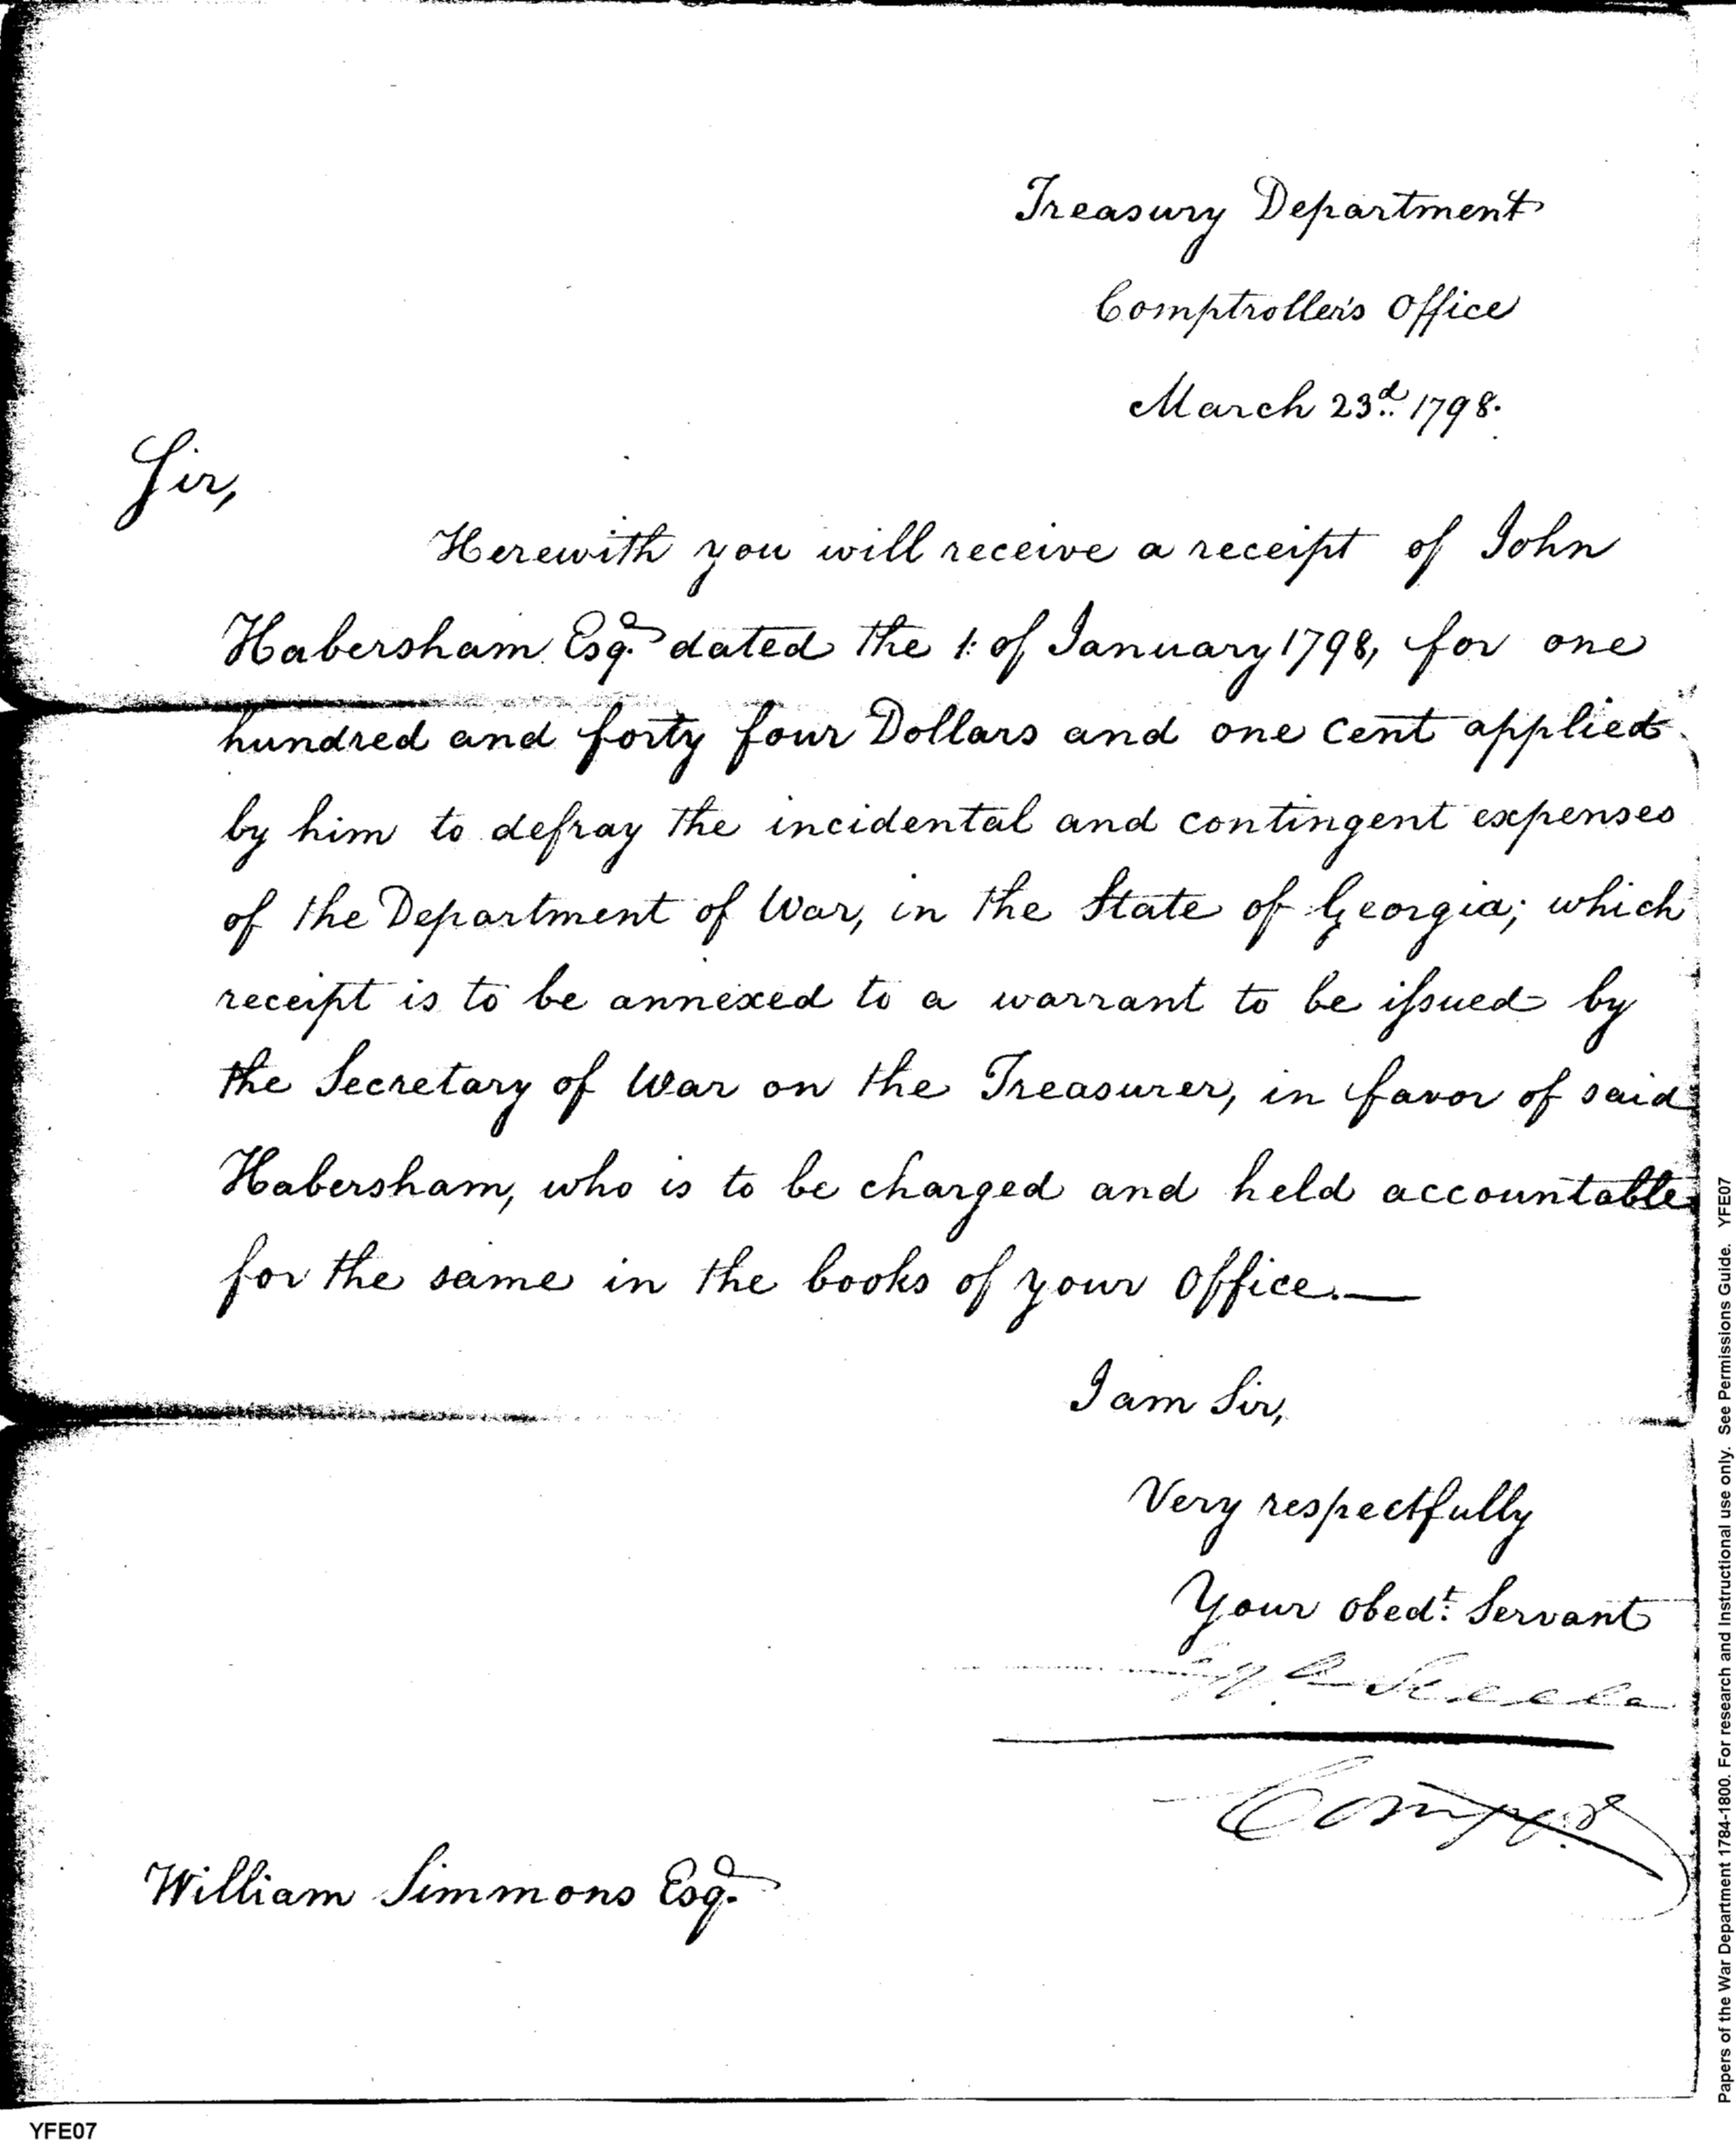 Treasury Department
Comptroller's Office
March 23d. 1798.
Sir,
Herewith you will receive a receipt of John
Habersham Esqr. dated the 1: of January 1798, for one
hundred and forty four Dollars and one Cent applied
by him to defray the incidental and contingent expenses
of the Department of War, in the State of Georgia; which
receipt is to be annexed to a warrant to be issued by
the Secretary of War on the Treasurer, in favor of said
Habersham, who is to be charged and held accountable
for the same in the books of your Office.—
I am Sir,
Very respectfully
Your Obedt. Servant
Jno. Steele
Compr.
William Simmons Esqr.
YFE07
Papers of the War Department 1784-1800. For research and Instructional use only. See Permissions Guide. YFE07